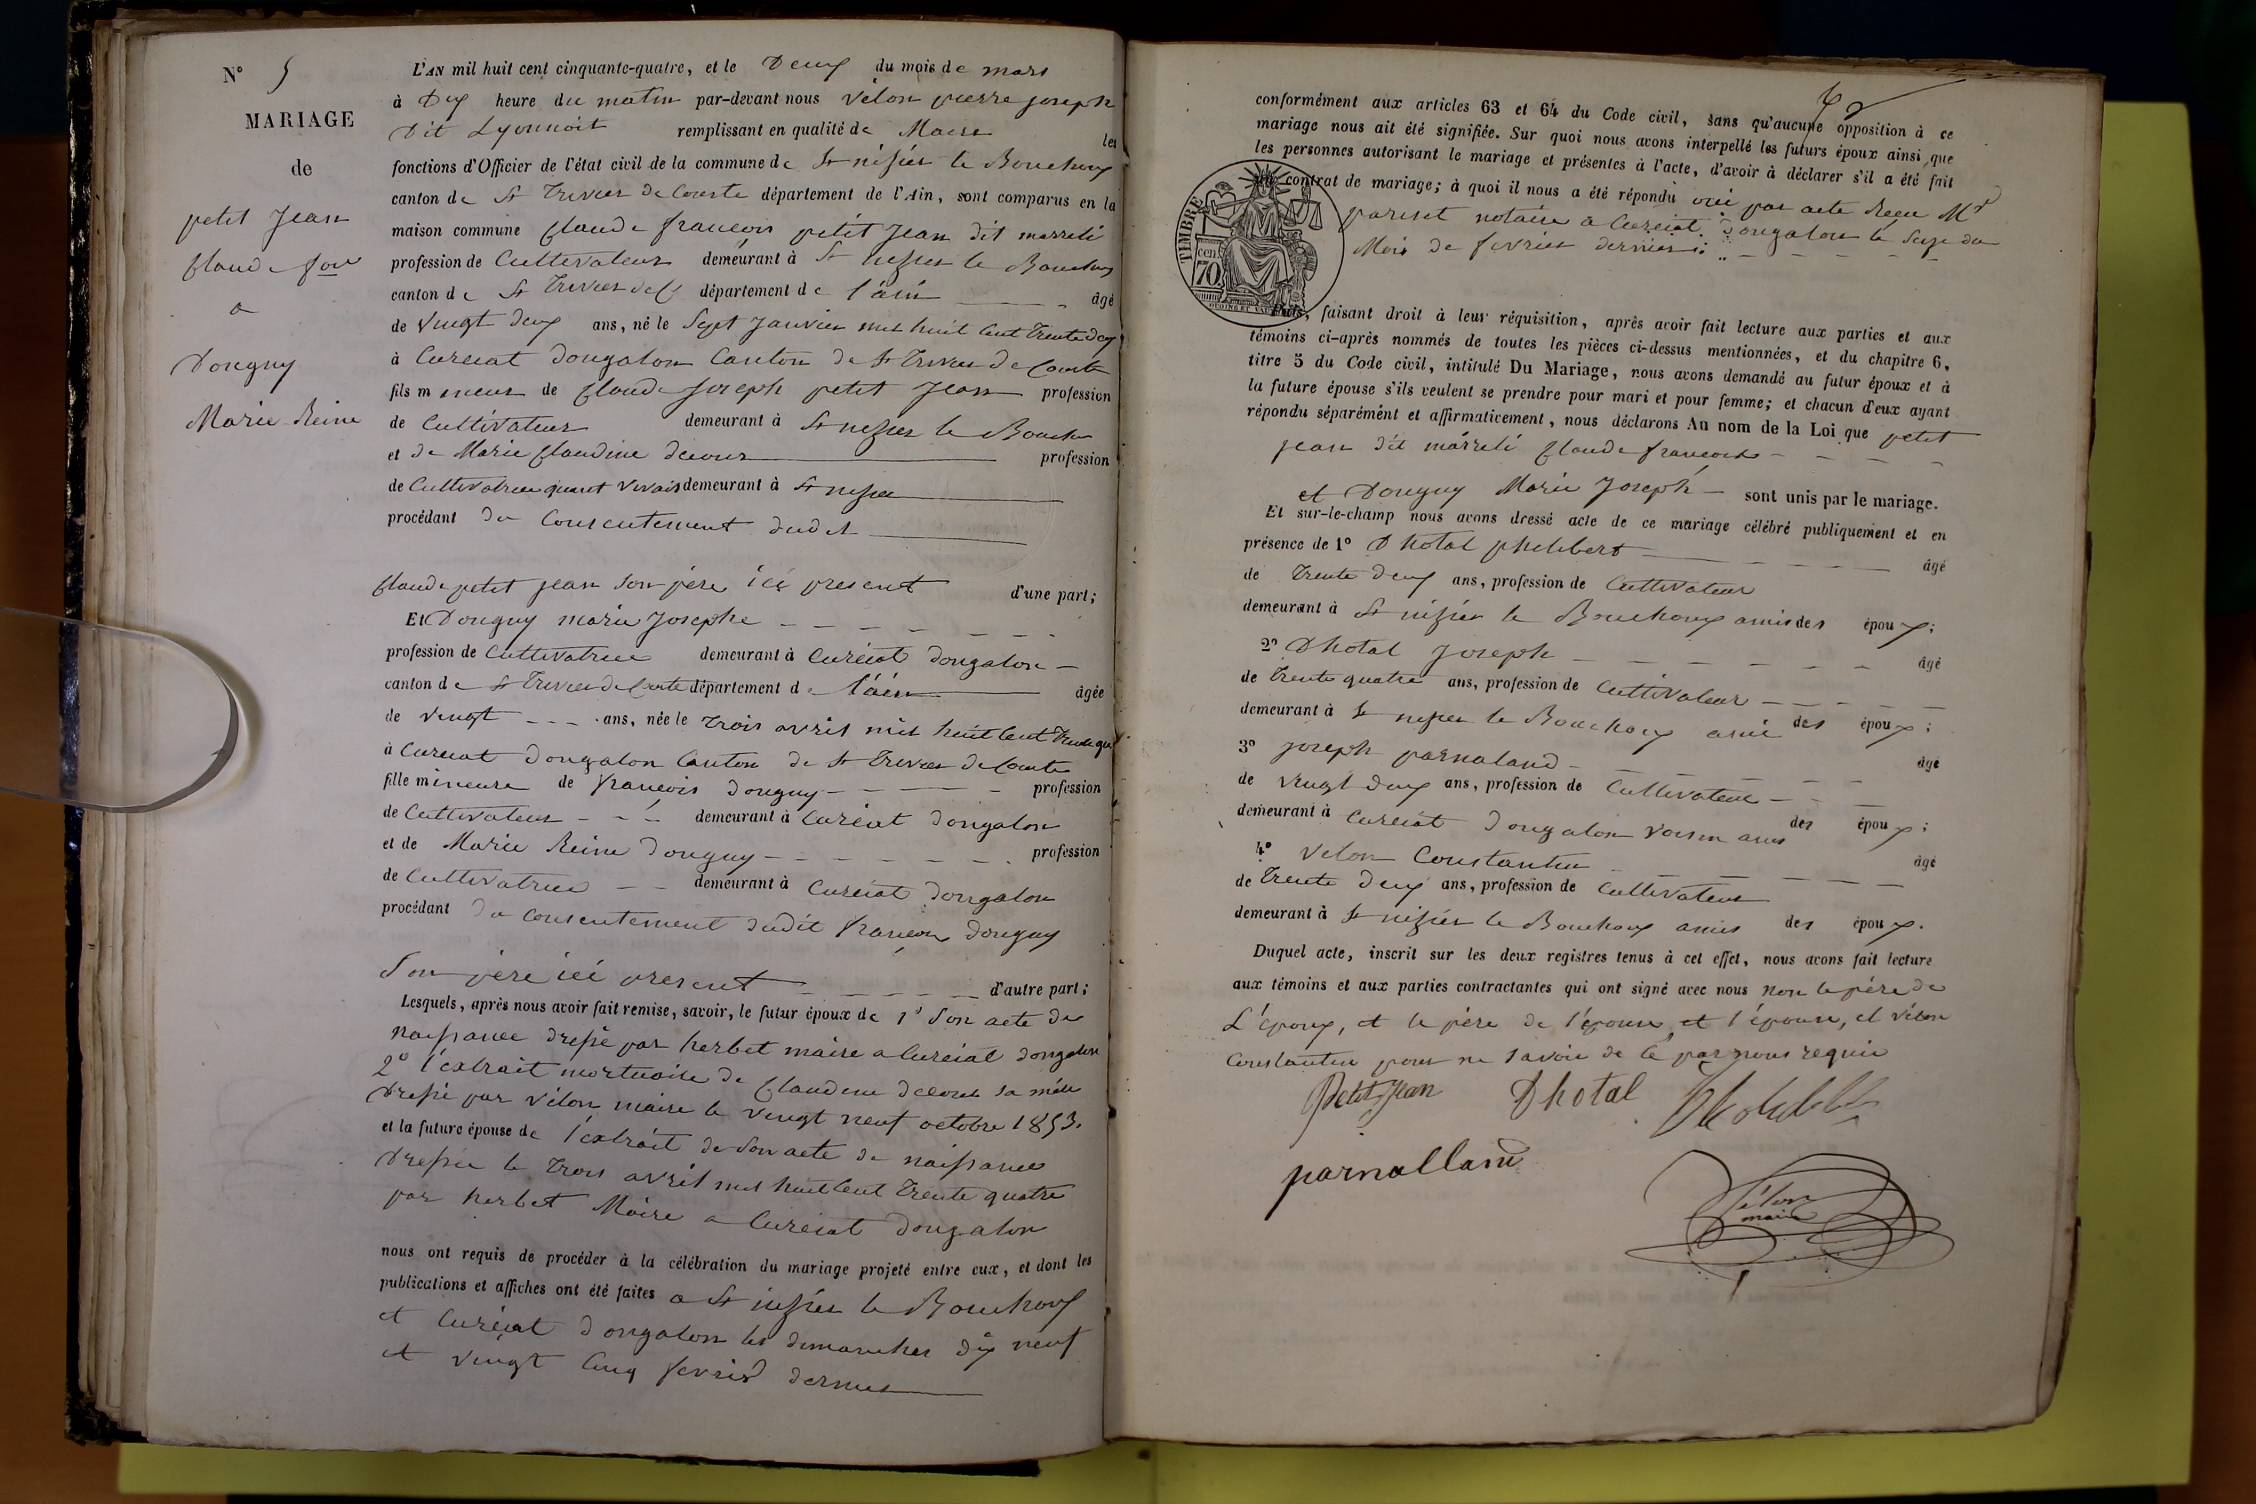 N° 5
MARIAGE
de
petit Jean
Claude fois
a
Dougny
Marie Reine
L'AN mil huit cent cinquante-quatre, et le Deux du mois de mars
à Dix heure du matin par-devant nous Vélon pierre joseph
Dit Lyonnoit remplissant en qualité de Maire les
fonctions d'Officier de l'état civil de la commune de St nizier le Bouchoux
canton de St Trivier de Courte département de l'Ain, sont comparus en la
maison commune Claude francois petit Jean dit marreli
profession de Cultivateur demeurant à St nizier le Bouchoux
canton de St Trivier de C département de l'áin âgé
de Vingt deux ans, né le Sept Janvier mil huit Cent Trente deux
à Curciat dongalon Canton de St Trivier de Courte
fils mineur de Claude Joseph petit Jean profession
de Cultivateur demeurant à St nizier le Bouchx
et de Marie Claudine decour profession
de Cultivatrice quant vivais demeurant à St nizier
procédant du Consentement dudit
Claude petit jean son père ici present d'une part;
Et Dougny marie Josephe
profession de Cultivatrice demeurant à Curciat dongalon
canton de St Trivier de Courte département de l'áin âgée
de vingt ans, née le trois avril mil huit Cent Trente qu
à Curciat dongalon Canton de St Trivier de Courte
fille mineure de francois dougny profession
de Cultivateur demeurant à Curciat dongalon
et de Marie Reine dougny profession
de Cultivatrice demeurant à Curciat dongalon
procédant du consentement dudit francois dougny
Son père ici present d'autre part;
Lesquels, après nous avoir fait remise, savoir, le futur époux de 1° Son acte de
naissance dressé par herbet maire a Curciat dongalon
2° l'extrait mortuaire de Claudine decour sa mère
dressé par vélon maire le vingt neuf octobre 1853.
et la future épouse de l'extrait de son acte de naissance
dressée le Trois avril mil huit Cent Trente quatre
par herbet Maire a Curciat dongalon
nous ont requis de procéder à la célébration du mariage projeté entre eux, et dont les
publications et affiches ont été faites a St nizier le Bouchoux
et Curciat dongalon les dimanches dix neuf
et vingt Cinq fevrier dernier
conformément aux articles 63 et 64 du Code civil, sans qu'aucune opposition à ce
mariage nous ait été signifiée. Sur quoi nous avons interpellé les futurs époux ainsi que
les personnes autorisant le mariage et présentes à l'acte, d'avoir à déclarer s'il a été fait
un contrat de mariage; à quoi il nous a été répondu oui par acte Recu Me
pariset notaire a Curciat dongalon le Seize du
Mois de fevrier dernier
TIMBRE
cen
70
Puis, faisant droit à leur réquisition, après avoir fait lecture aux parties et aux
témoins ci-après nommés de toutes les pièces ci-dessus mentionnées, et du chapitre 6,
titre 5 du Code civil, intitulé Du Mariage, nous avons demandé au futur époux et à
la future épouse s'ils veulent se prendre pour mari et pour femme; et chacun d'eux ayant
répondu séparément et affirmativement, nous déclarons Au nom de la Loi que petit
jean dit márreli Claude francois
et Dougny Marie Joseph sont unis par le mariage.
Et sur-le-champ nous avons dressé acte de ce mariage célébré publiquement et en
présence de 1° Dhotal philibert âgé
de Trente deux ans, profession de Cultivateur
demeurant à St nizier le Bouchoux amis des époux;
2° Dhotal Joseph âgé
de Trente quatre ans, profession de Cultivateur
demeurant à St nizier le Bouchoux amie des époux;
3° joseph parnaland âgé
de vingt deux ans, profession de Cultivateur
demeurant à Curciat dongalon voisin amis des époux;
4° Velon Constantin âgé
de Trente deux ans, profession de Cultivateur
demeurant à St nizier le Bouchoux amis des époux.
Duquel acte, inscrit sur les deux registres tenus à cet effet, nous avons fait lecture
aux témoins et aux parties contractantes qui ont signé avec nous non le père de
L'époux, et le père de l'épouse et l'épouse, et vélon
Constantin pour ne savoir de ce par nous requis
Petitjean Dhotal
parnalland
Vélon
maire